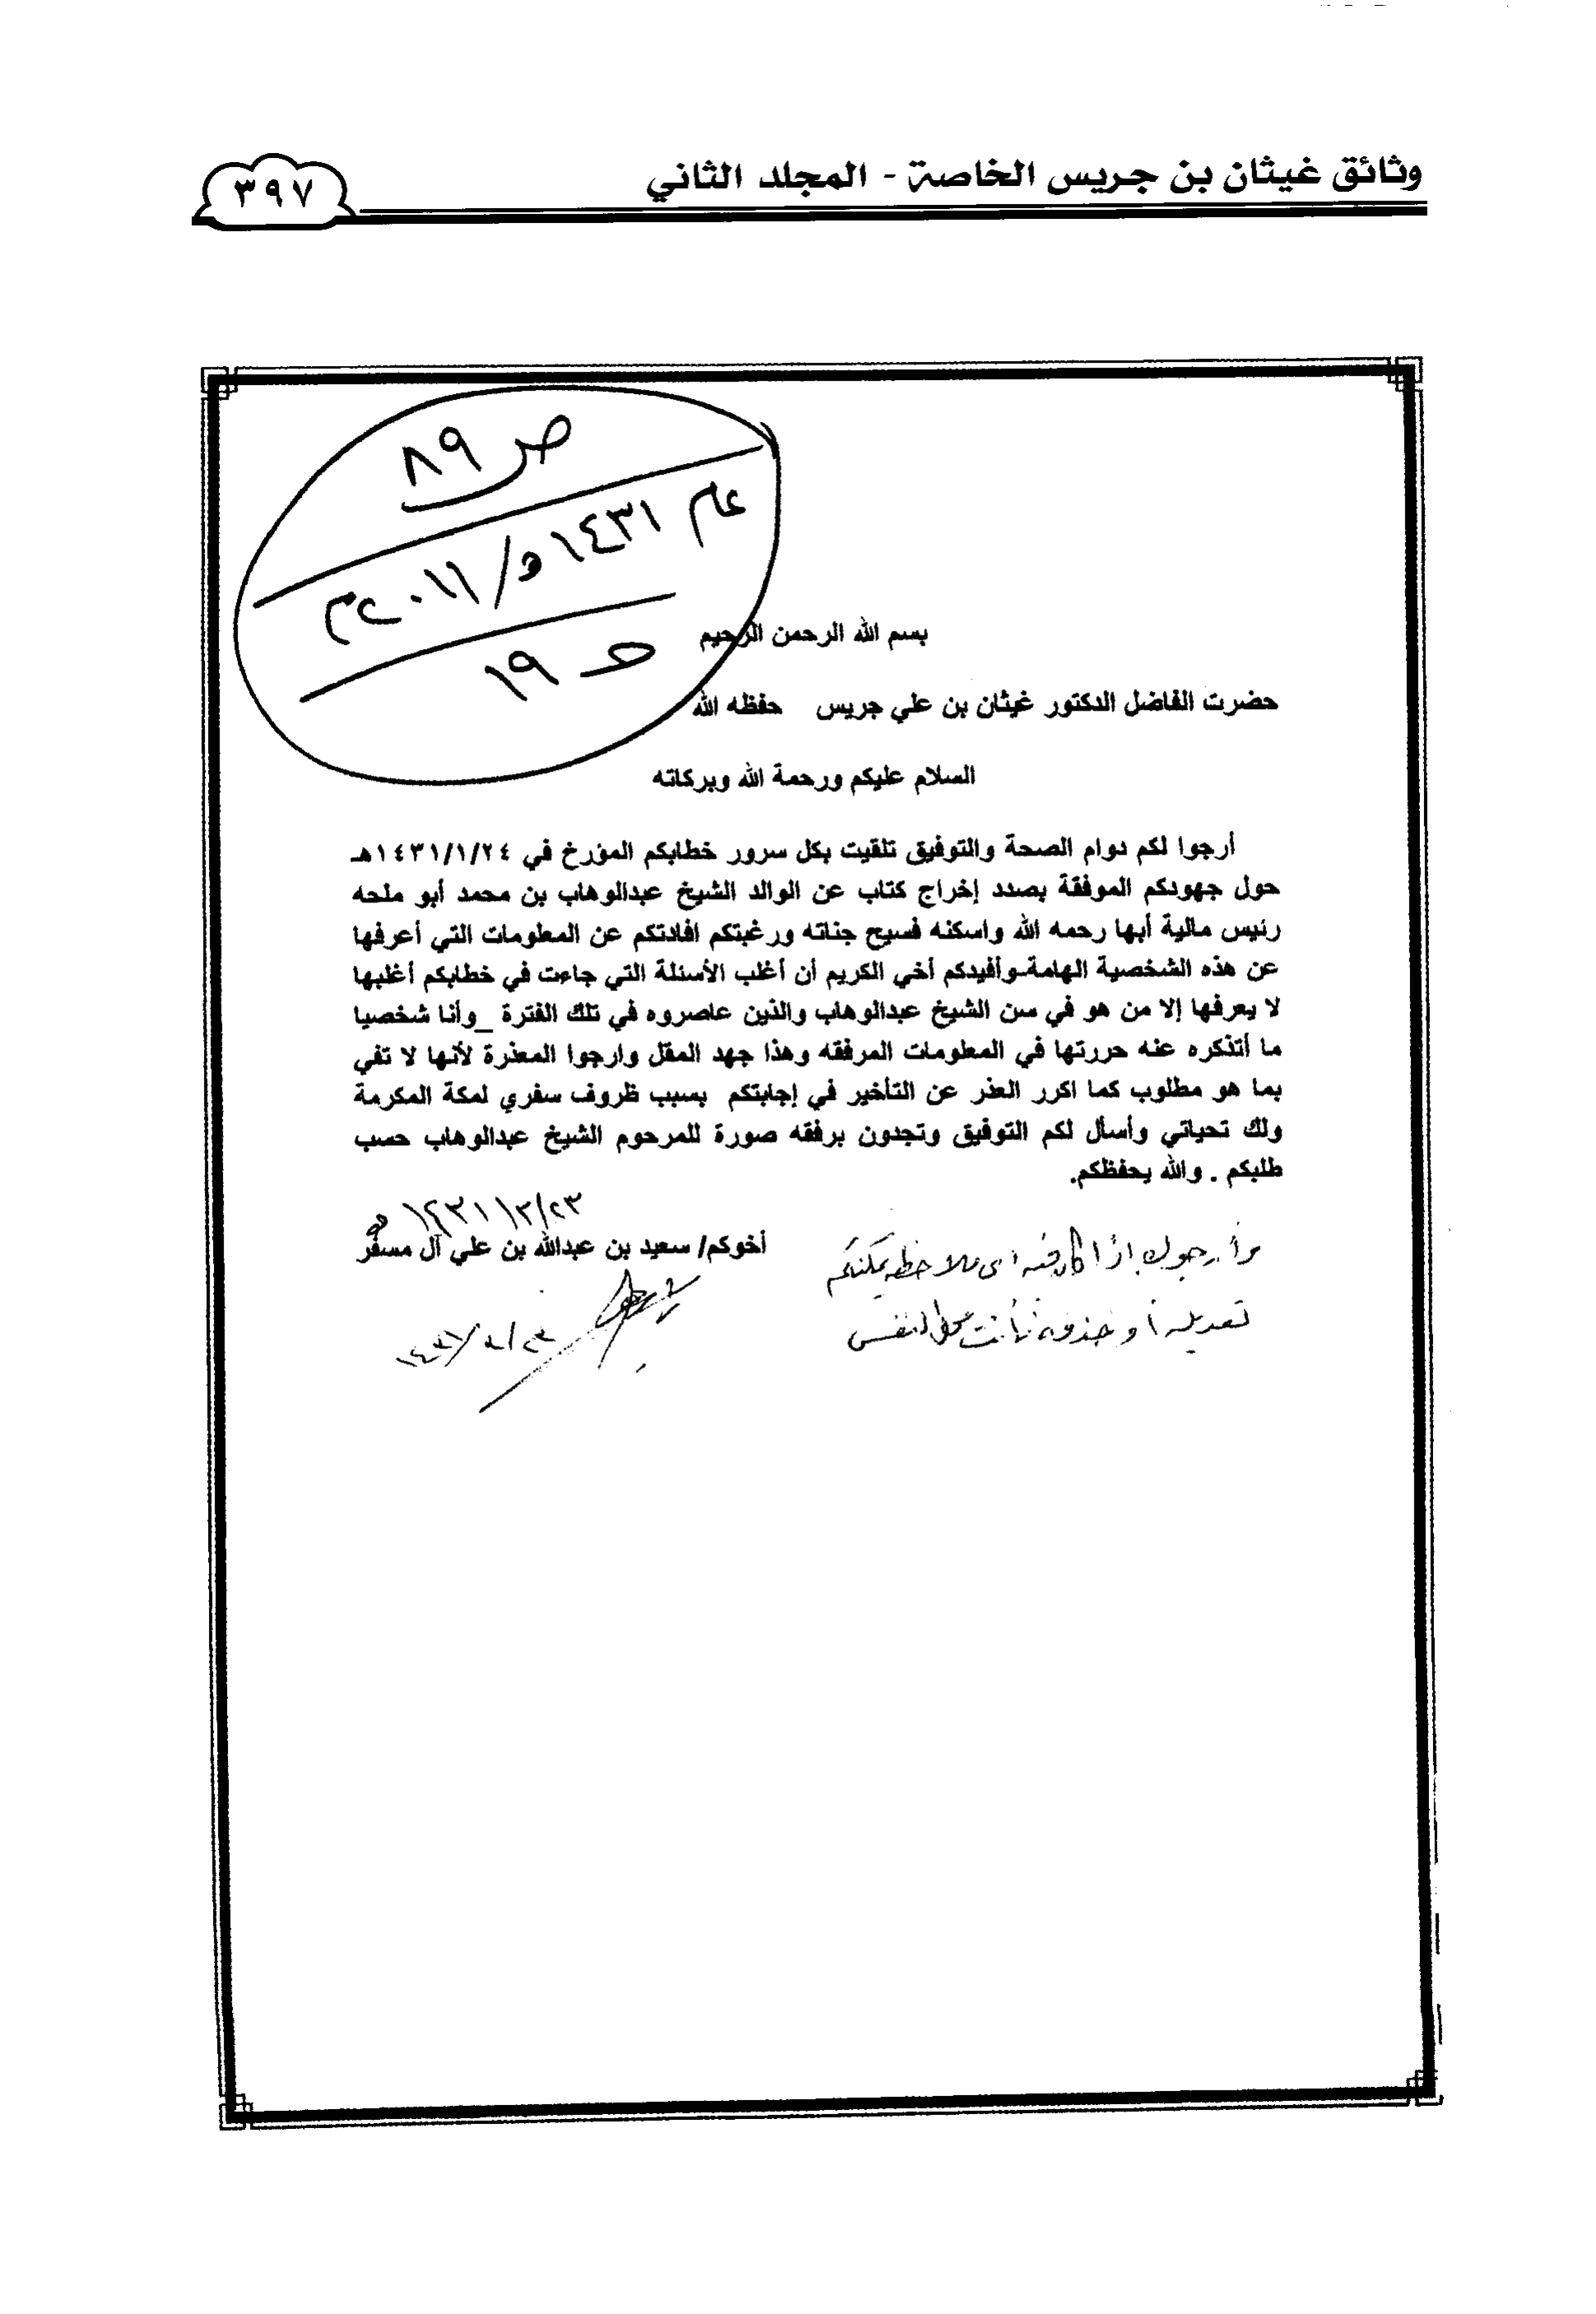 وثائق غيثان بن جريس الخاصة - المجلد الثاني
٣٩٧
ص ٨٩
عام ١٤٣١هـ/٢٠١١م
حـ ١٩
بسم الله الرحمن الرحيم
حضرت الفاضل الدكتور غيثان بن علي جريس حفظه الله
السلام عليكم ورحمة الله وبركاته
أرجوا لكم دوام الصحة والتوفيق تلقيت بكل سرور خطابكم المؤرخ في ١٤٣١/١/٢٤هـ
حول جهودكم الموفقة بصدد إخراج كتاب عن الوالد الشيخ عبدالوهاب بن محمد أبو ملحه
رئيس مالية أبها رحمه الله واسكنه فسيح جناته ورغبتكم افادتكم عن المعلومات التي أعرفها
عن هذه الشخصية الهامة_وأفيدكم أخي الكريم أن أغلب الأسئلة التي جاءت في خطابكم أغلبها
لا يعرفها إلا من هو في سن الشيخ عبدالوهاب والذين عاصروه في تلك الفترة _وأنا شخصيا
ما أتذكره عنه حررتها في المعلومات المرفقه وهذا جهد المقل وارجوا المعذرة لأنها لا تفي
بما هو مطلوب كما اكرر العذر عن التأخير في إجابتكم بسبب ظروف سفري لمكة المكرمة
ولك تحياتي وأسأل لكم التوفيق وتجدون برفقه صورة للمرحوم الشيخ عبدالوهاب حسب
طلبكم . والله يحفظكم.
١٤٣١/٣/٢٣هـ
أخوكم/ سعيد بن عبدالله بن علي آل مسفر
وأرجوك إذا كان فيه اى ملاحظه يمكنكم
تعديله أو حذفه فأنت محل النفس